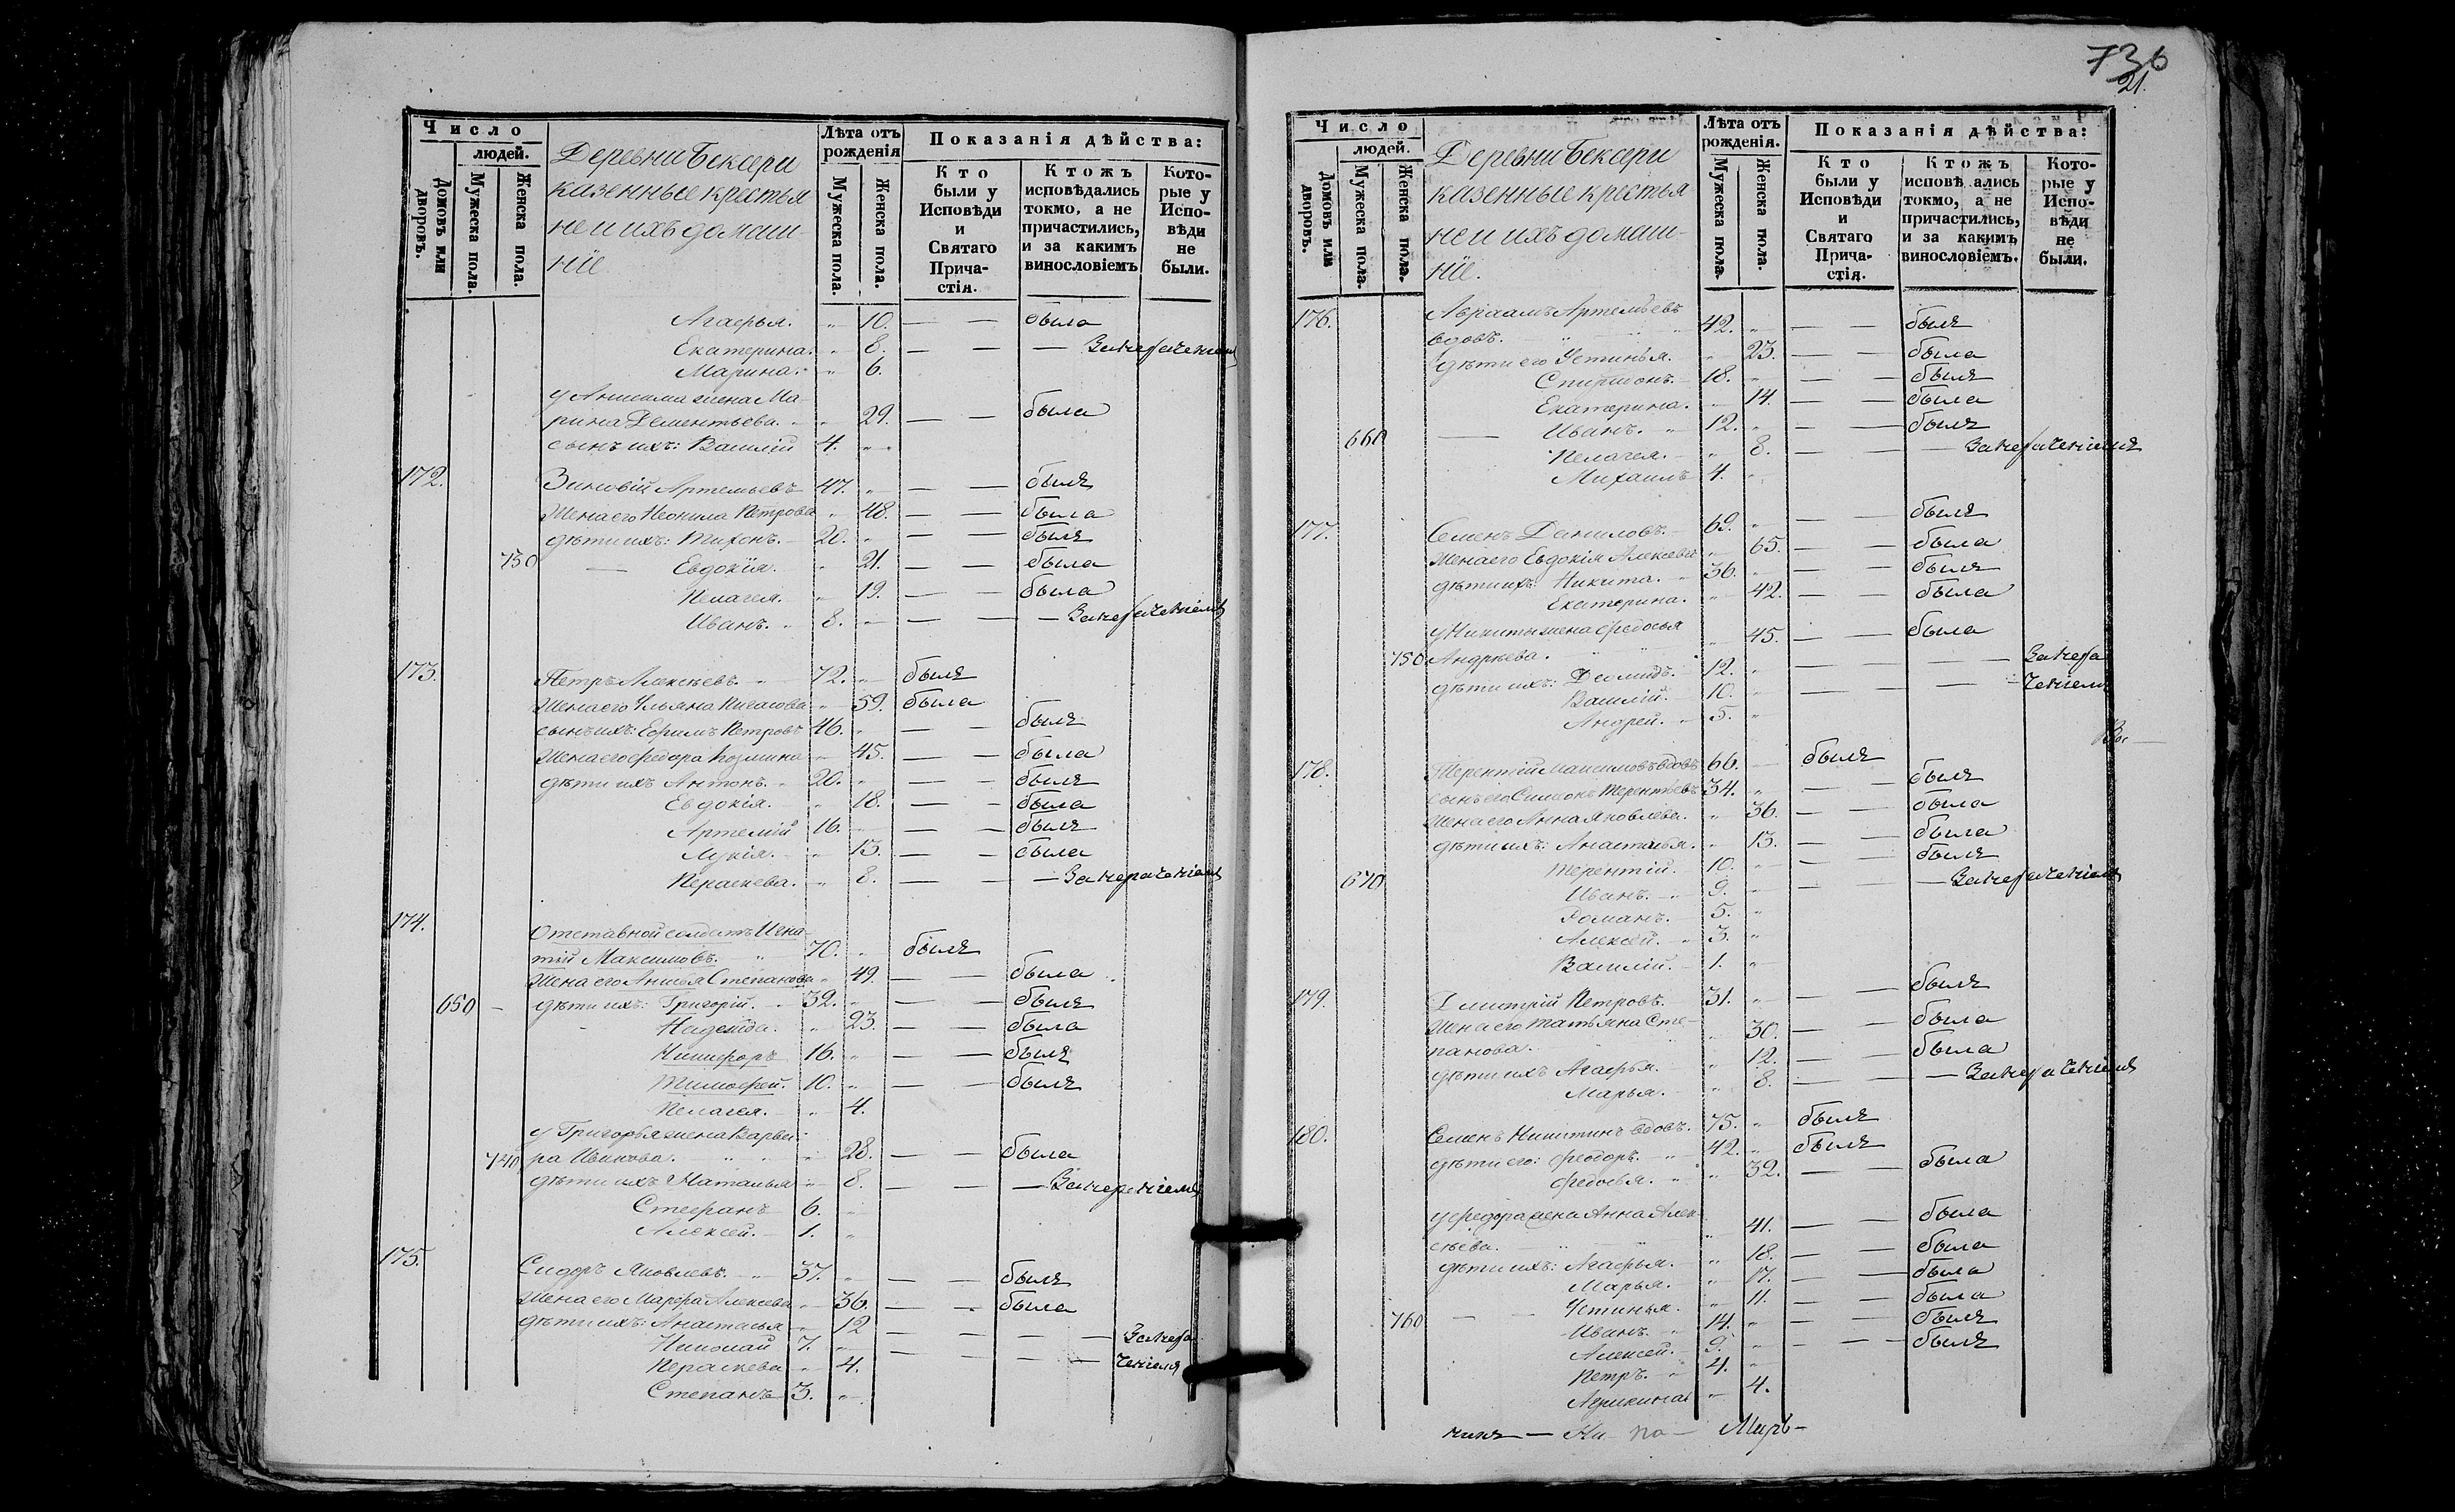 736
21.
Число
людей.
Домовъ или дворовъ.
Мужеска пола.
Женска пола.
Деревни Бексери
казенные крестья
не и ихъ домаш-
ніе
Лѣта отъ рожденія
Мужеска пола.
Женска пола.
Показанія дѣйства:
Кто были у Исповѣди и Святаго Прича-стія.
Ктожъ исповѣдались токмо, а не причастились, и за какимъ винословіемъ
Кото-рые у Испо-вѣди не были.
Агафья. " 10. — — была
Екатерина. " 8. — — —
Марина. " 6.
у жена Ма
рина Дементьева. " 29. — — была
сынъ ихъ: Василій 4. "
172. Зиновій Артемьевъ 47. " — — былъ
Жена его Неонила Петрова " 48. — — была
дѣти ихъ: Тихонъ. 20. " — — былъ
730 — Евдокія. " 21. — — была
Пелагея. " 19. — — была
Иванъ. " 8. " — — —
173. Петръ Алексѣевъ. " 72. " былъ
Жена его Ульяна " 59. была
сынъ ихъ: Ефимъ Петровъ 46. " — — былъ
Жена его Федора Козмина " 45. — — была
дѣти ихъ Антонъ. " 20. " — — былъ
Евдокія. " 18. — — была
Артемій 16. " — — былъ
Лукія. " 13. — — была
Пераскева. " 8. — — —
174. Отставной солдатъ Игна
тій Максимовъ. " 70. " былъ
Жена его Анисья Степанова " 49. — — была
650 — дѣти ихъ: Григорій. " 32. " — — былъ
Надежда. " 23. — — была
Никифоръ 16. " — — былъ
Тимофей. 10. " — — былъ
Пелагея. " 4.
у Григорья жена Варва-
740 ра Иванова. " " 28. — — была
дѣти ихъ Наталья " 8. — — —
Стефанъ 6. "
Алексей. 1. "
175. Сидоръ Яковлевъ. " 37. " — — былъ
Жена его Марфа Алексева " 36. — — была
дѣти ихъ: Анастасья " 12 — — — —
Николай 7. " — — — —
Перасκева " 4.
Степанъ 3. "
Число
людей.
Домовъ или дворовъ.
Мужеска пола.
Женска пола.
Деревни Бексери
казенные крестья
не и ихъ домаш-
ніе.
Лѣта отъ рожденія.
Мужеска пола.
Женска пола.
Показанія дѣйства:
Кто были у Исповѣди и Святаго Прича-стія.
Ктожъ исповѣ ались токмо, а не причастились, и за какимъ винословіемъ.
Кото-рые у Испо-вѣди не были.
176. Авраамъ Артемьевъ
вдовъ. " " 42. " — — былъ
дѣти его Устинья. " 23. — — была
Спиридонъ. 18. " — — былъ
Екатерина. " 14. — — была
660 — Иванъ. " 12. " — — былъ
Пелагея. " 8. — — —
Михаилъ 4. "
177. Семенъ Даниловъ. 69. " — — былъ
Жена его Евдокія Алексева " 65. — — была
дѣти ихъ: Никита. 36. " — — былъ
Екатерина. " 42. — — была
у Никиты жена Федосья
750 Андрѣева. " " 45. — — была
дѣти ихъ: Деомидъ. 12. " — — — —
Василій. 10. " — — — —
Андрей. " 5. "
178. Терентій Максимовъ вдовъ 66. " былъ
сынъ его Симеонъ Терентьевъ 34. " — — былъ
Жена его Анна Яковлева. " 36. — — была
дѣти ихъ: Анастасья. " 13. — — была
Терентій. 10. " — — былъ
670 Иванъ. " 9. " — — —
Романъ. 5. "
Алексей. " 3. "
Василій. 1. "
179. Дмитрій Петровъ. 31. " — — былъ
Жена его Татьяна Сте-
панова. " " 30. — — была
дѣти ихъ Агафья. " 12. — — была
Марья. " 8. — — —
180. Семенъ Никитинъ вдовъ. 75. " былъ
дѣти его: Феодоръ. " 42. " былъ
Федосья. " " 32. — — была
у Федора жена Анна Алек-
сѣева. " " 41. — — была
дѣти ихъ: Агафья. " 18. — — была
Марья. " 17. — — была
760 — — Устинья. " 11. — — была
Иванъ. " 14. " — — былъ
Алексей. 9. " — — — былъ
Петръ. " 4. "
" 4.